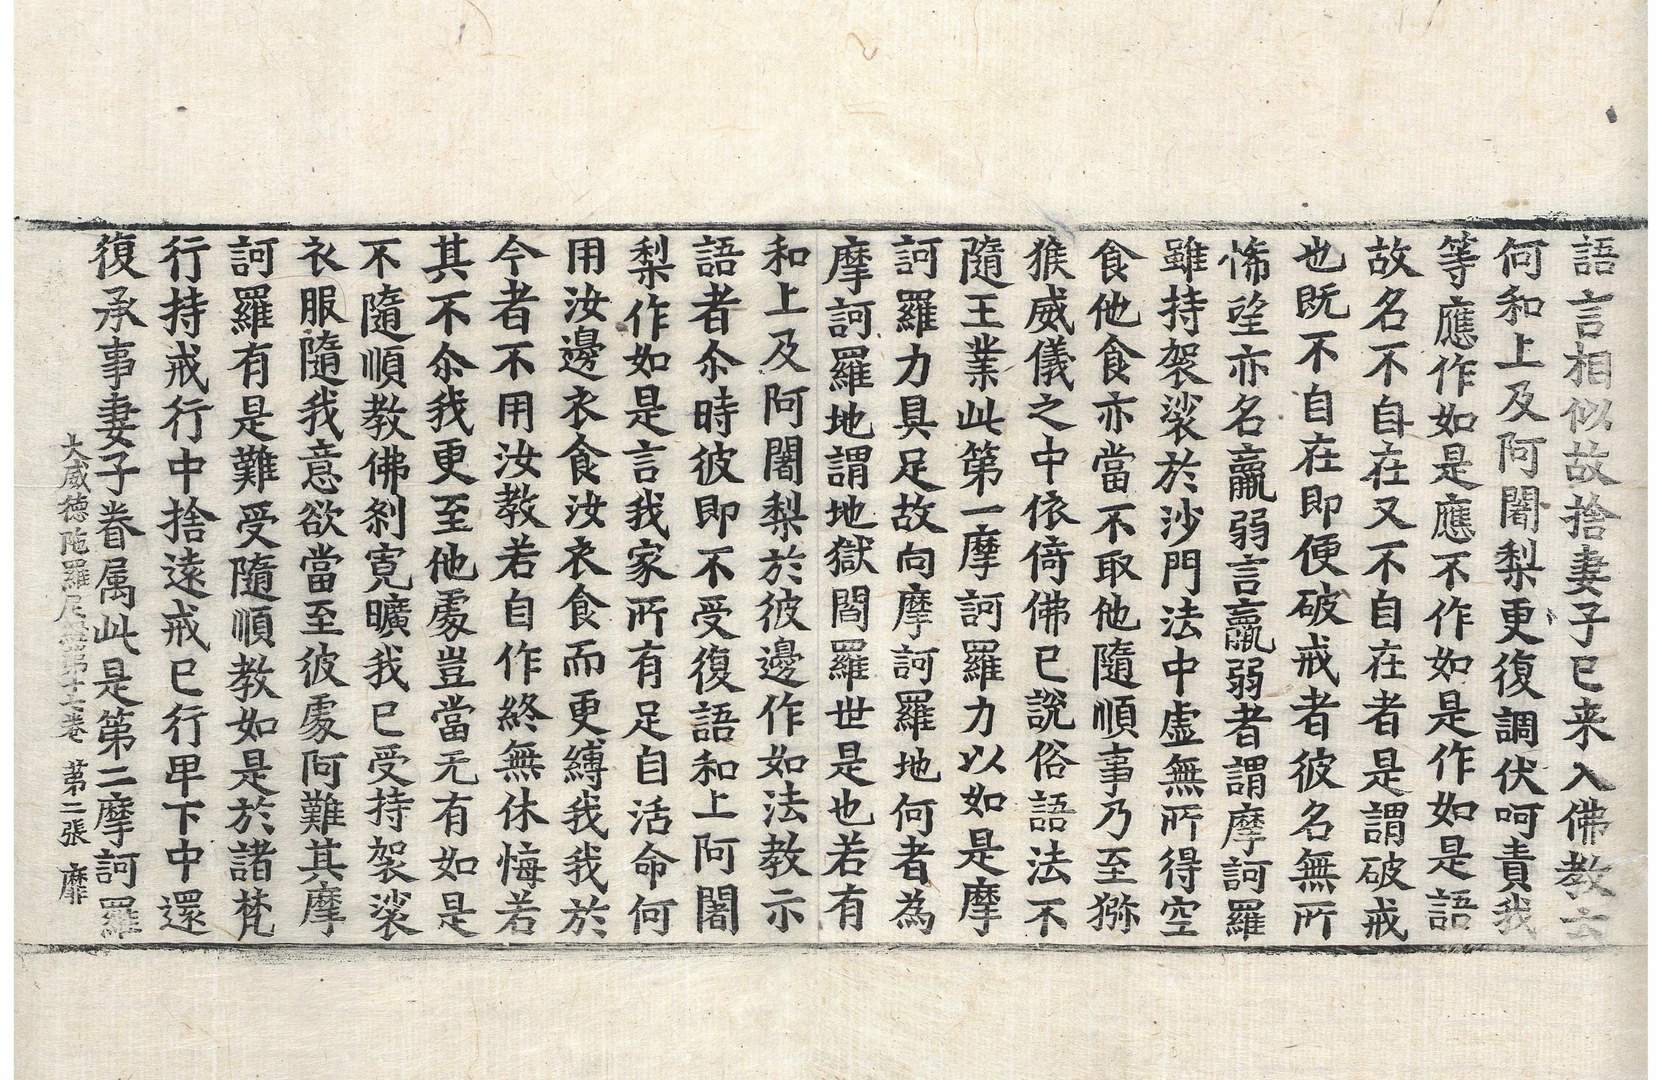 語言相似故捨妻子已来入佛教云
何和上及阿闍梨更復調伏呵責我
等應作如是應不作如是作如是語
故名不自在又不自在者是謂破戒
也既不自在即便破戒者彼名無所
悕望亦名羸弱言羸弱者謂摩訶羅
雖持袈裟於沙門法中虛無所得空
食他食亦當不取他隨順事乃至獼
猴威儀之中依倚佛已說俗語法不
隨王業此第一摩訶羅力以如是摩
訶羅力具足故向摩訶羅地何者為
摩訶羅地謂地獄閻羅世是也若有
和上及阿闍梨於彼邊作如法教示
語者尒時彼即不受復語和上阿闍
梨作如是言我家所有足自活命何
用汝邊衣食汝衣食而更縛我我於
今者不用汝教若自作終無休悔若
其不尒我更至他處豈當无有如是
不隨順教佛剎寬曠我已受持袈裟
衣服隨我意欲當至彼處阿難其摩
訶羅有是難受隨順教如是於諸梵
行持戒行中捨遠戒已行卑下中還
復承事妻子眷属此是第二摩訶羅
大威德陁羅尼經第十七卷 第二張 靡